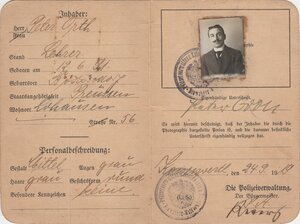 Inhaber:
Herr Peter Orth
Frau
Stand Lehrer
Geboren am 12. 6. 81
Geburtsort
Staatsangehörigkeit Preußen
Wohnort
Straße Nr. 56
Personalbeschreibung:
Gestalt Mittel Augen grau
Haare grau Gesichtsform rund
Besondere Kennzeichen keine
Photographie
Eigenhändige Unterschrift.
Peter Orth
Es wird hiermit bescheinigt, daß der Inhaber die durch die
Photographie dargestellte Person ist und die darunter befindliche
Unterschrift eigenhändig vollzogen hat.
, den 24. 9. 19
Die Polizeiverwaltung.
Der Bürgermeister.